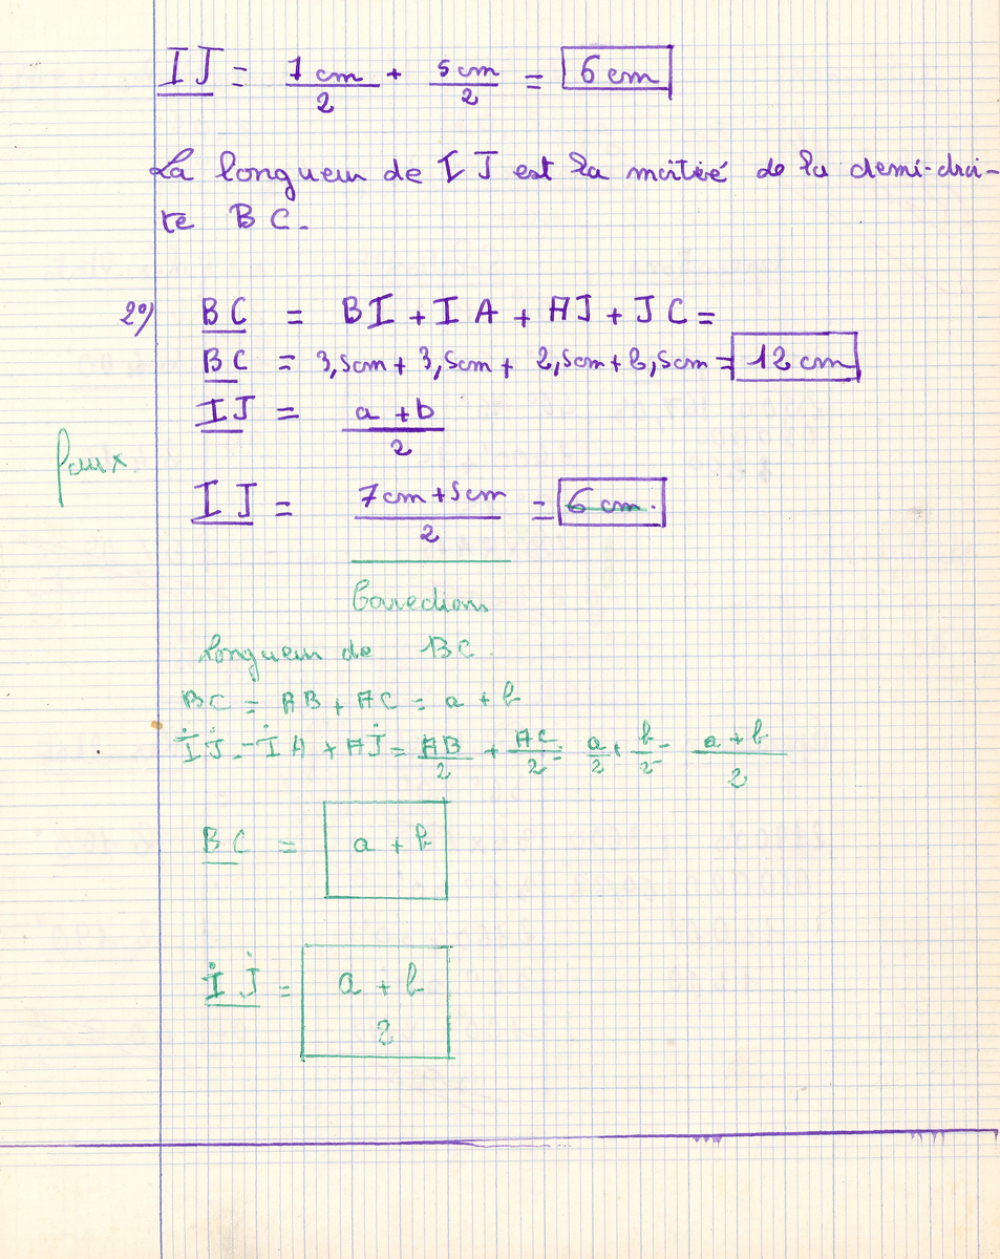 IJ = 7cm/2 + 5cm/2 = 6cm
La longueur de IJ est la moitié de la demi-droi-
te BC.
2°) BC = BI + IA + AJ + JC =
BC = 3,5cm + 3,5cm + 2,5cm + 2,5cm = 12 cm
IJ = a + b / 2
faux
IJ = 7cm + 5cm / 2 = 6 cm.
Corrections
longueur de BC.
BC = AB + AC = a + b
IJ = IA + AJ = AB/2 + AC/2 = a/2 + b/2 = a + b / 2
BC = a + b
IJ = a + b
2